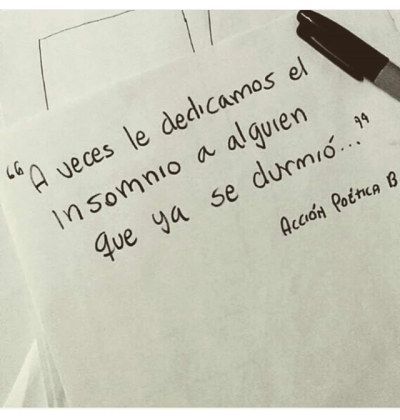 "A veces le dedicamos el
insomnio a alguien
que ya se durmió..."
Acción Poética B